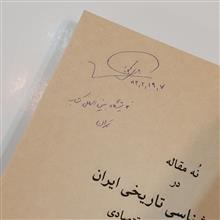 ۸۲,۲,۱۹,۷
نمایشگاه بین المللی کتاب
تهران
نُه مقاله
در
شناسی تاریخی ایران